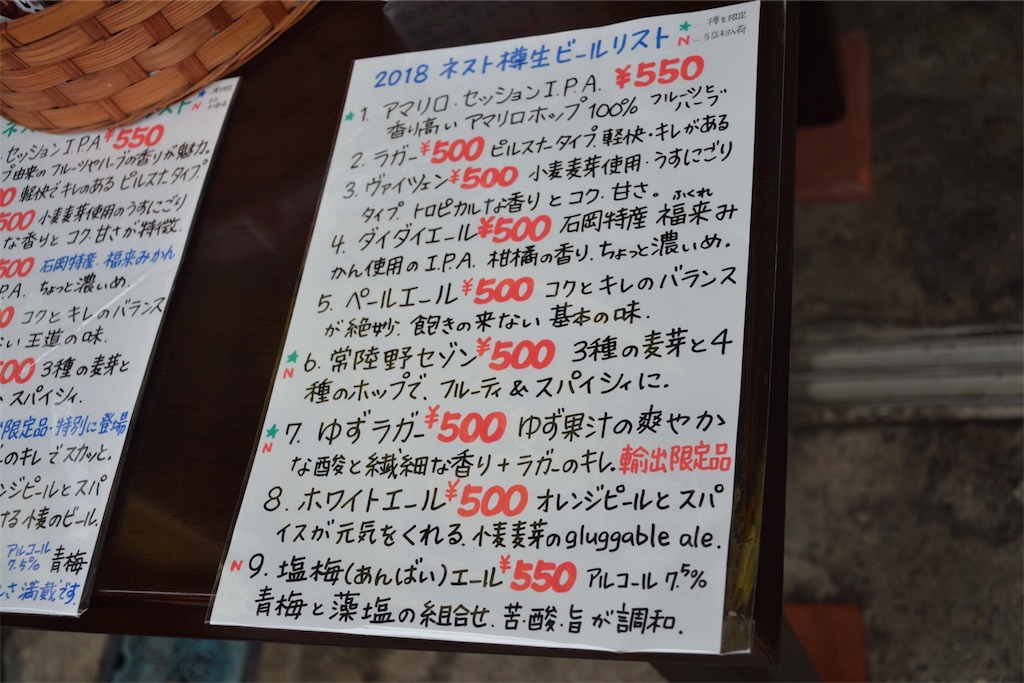 2018 ネスト樽生ビールリスト
★… 樽生限定
N… 当店初入荷
★ 1. アマリロ・セッションI.P.A. ¥550
香り高い アマリロホップ 100% フルーツとハーブ
2. ラガー ¥500 ピルスナータイプ. 軽快・キレがある
3. ヴァイツェン ¥500 小麦麦芽使用・うすにごり
タイプ. トロピカルな香りとコク. 甘さ。
4. ダイダイエール ¥500 石岡特産 福来み
ふくれ
かん使用のI.P.A. 柑橘の香り. ちょっと濃いめ.
5. ペールエール ¥500 コクとキレのバランス
が絶妙. 飽きの来ない 基本の味.
★ N 6. 常陸野セゾン ¥500 3種の麦芽と4
種のホップで、フルーティ&スパイシィに.
★ N 7. ゆずラガー ¥500 ゆず果汁の爽やか
な酸と繊細な香り+ラガーのキレ. 輸出限定品
8. ホワイトエール ¥500 オレンジピールとスパ
イスが元気をくれる. 小麦麦芽のgluggable ale.
N 9. 塩梅(あんばい)エール ¥550 アルコール 7.5%
青梅と藻塩の組合せ. 苦・酸・旨が調和.
ネスト
リスト
セッションI.P.A ¥550
プ由来の フルーツやハーブの香りが魅力.
0 軽快でキレのある ピルスナータイプ.
500 小麦麦芽使用のうすにごり
な香りとコク. 甘さが特徴.
500 石岡特産. 福来みかん
P.A. ちょっと濃いめ.
0 コクとキレのバランス
ない 王道の味.
500 3種の麦芽と
& スパイシィ.
限定品・特別に登場
のキレでスカッと.
ンジピールとスパ
する小麦のビール.
アルコール 7.5% 青梅
しさ満載です.